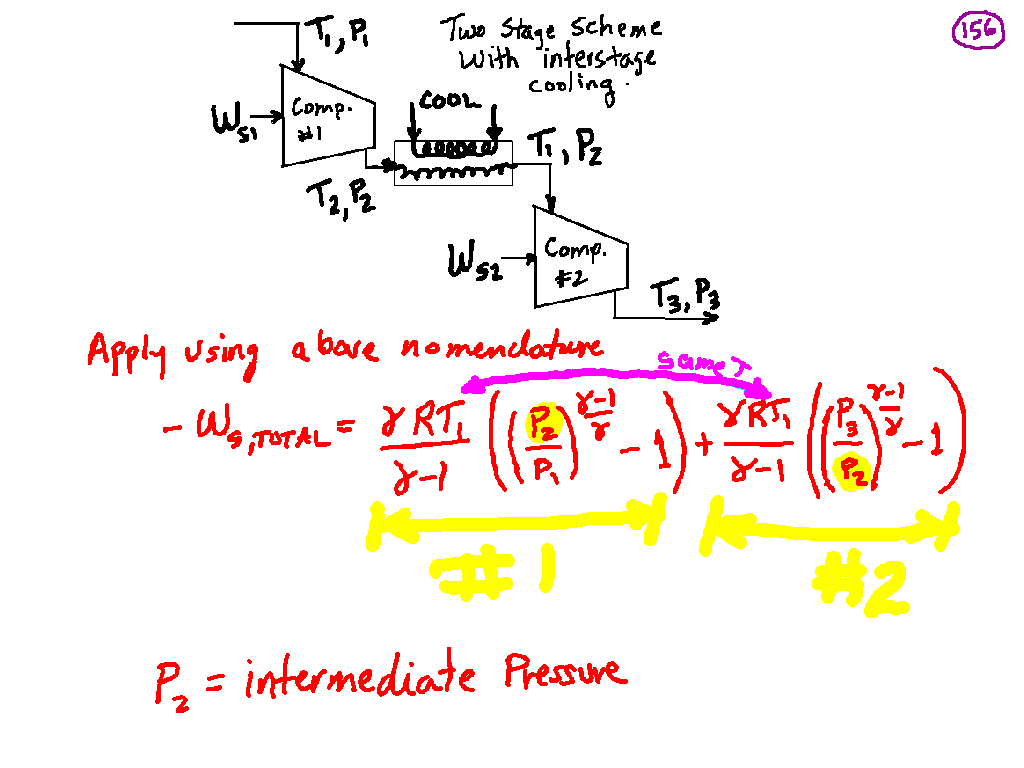 156
T₁, P₁
Two Stage Scheme
With interstage
cooling.
COOL
Comp.
#1
W_S1
T₁, P₂
T₂, P₂
Comp.
#2
W_S2
T₃, P₃
Apply using above nomenclature
same T
-W_S,TOTAL = γRT₁/(γ-1) ((P₂/P₁)^((γ-1)/γ) - 1) + γRT₁/(γ-1) ((P₃/P₂)^((γ-1)/γ) - 1)
#1 #2
P₂ = intermediate Pressure